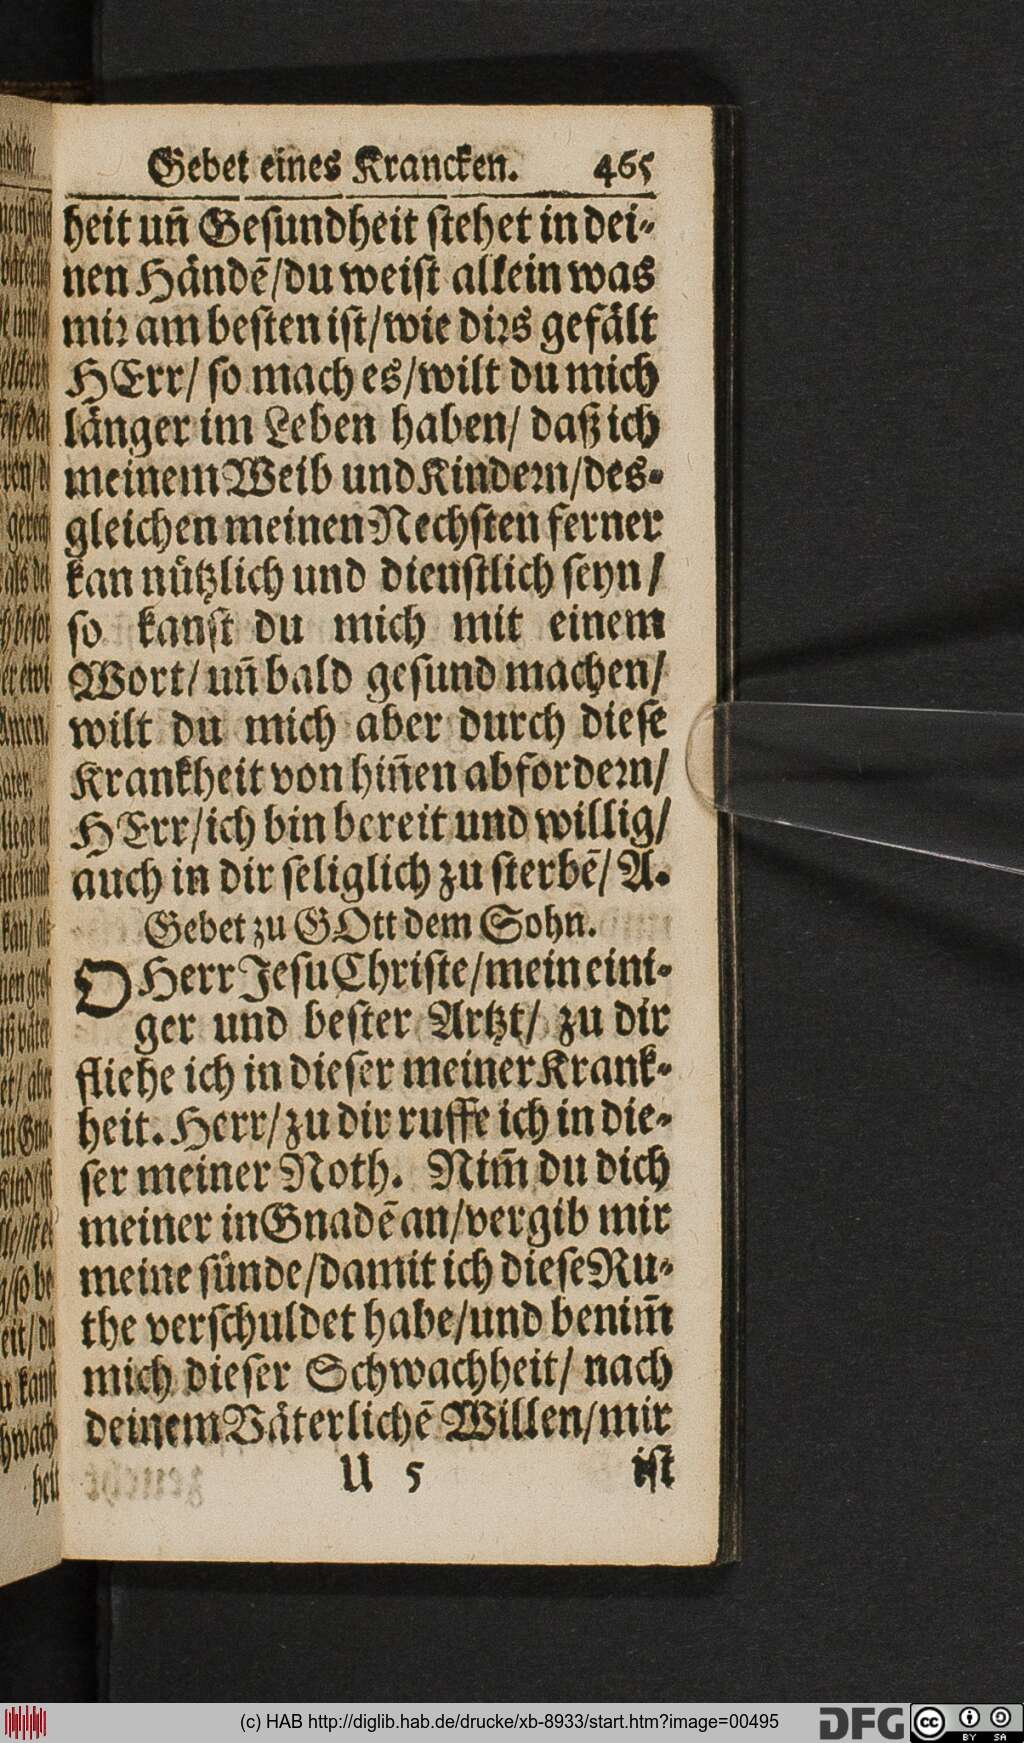 Gebet eines Krancken. 465
heit uñ Geſundheit ſtehet in dei-
nen Händẽ/du weiſt allein was
mir am beſten iſt/wie dirs gefält
HErr/ ſo mach es/wilt du mich
länger im Leben haben/ daß ich
meinem Weib und Kindern/des-
gleichen meinen Nechſten ferner
kan nützlich und dienſtlich ſeyn/
ſo kanſt du mich mit einem
Wort/ uñ bald geſund machen/
wilt du mich aber durch dieſe
Krankheit von hiñen abfordern/
HErr/ich bin bereit und willig/
auch in dir ſeliglich zu ſterbẽ/ A.
Gebet zu GOtt dem Sohn.
O Herr Jeſu Chriſte/mein eini-
ger und beſter Artzt/ zu dir
fliehe ich in dieſer meiner Krank-
heit. Herr/zu dir ruffe ich in die-
ſer meiner Noth. Nim̃ du dich
meiner in Gnadẽ an/vergib mir
meine ſünde/damit ich dieſe Ru-
the verſchuldet habe/und benim̃
mich dieſer Schwachheit/ nach
deinem Väterlichẽ Willen/mir
U 5 iſt
(c) HAB http://diglib.hab.de/drucke/xb-8933/start.htm?image=00495
DFG
cc BY SA